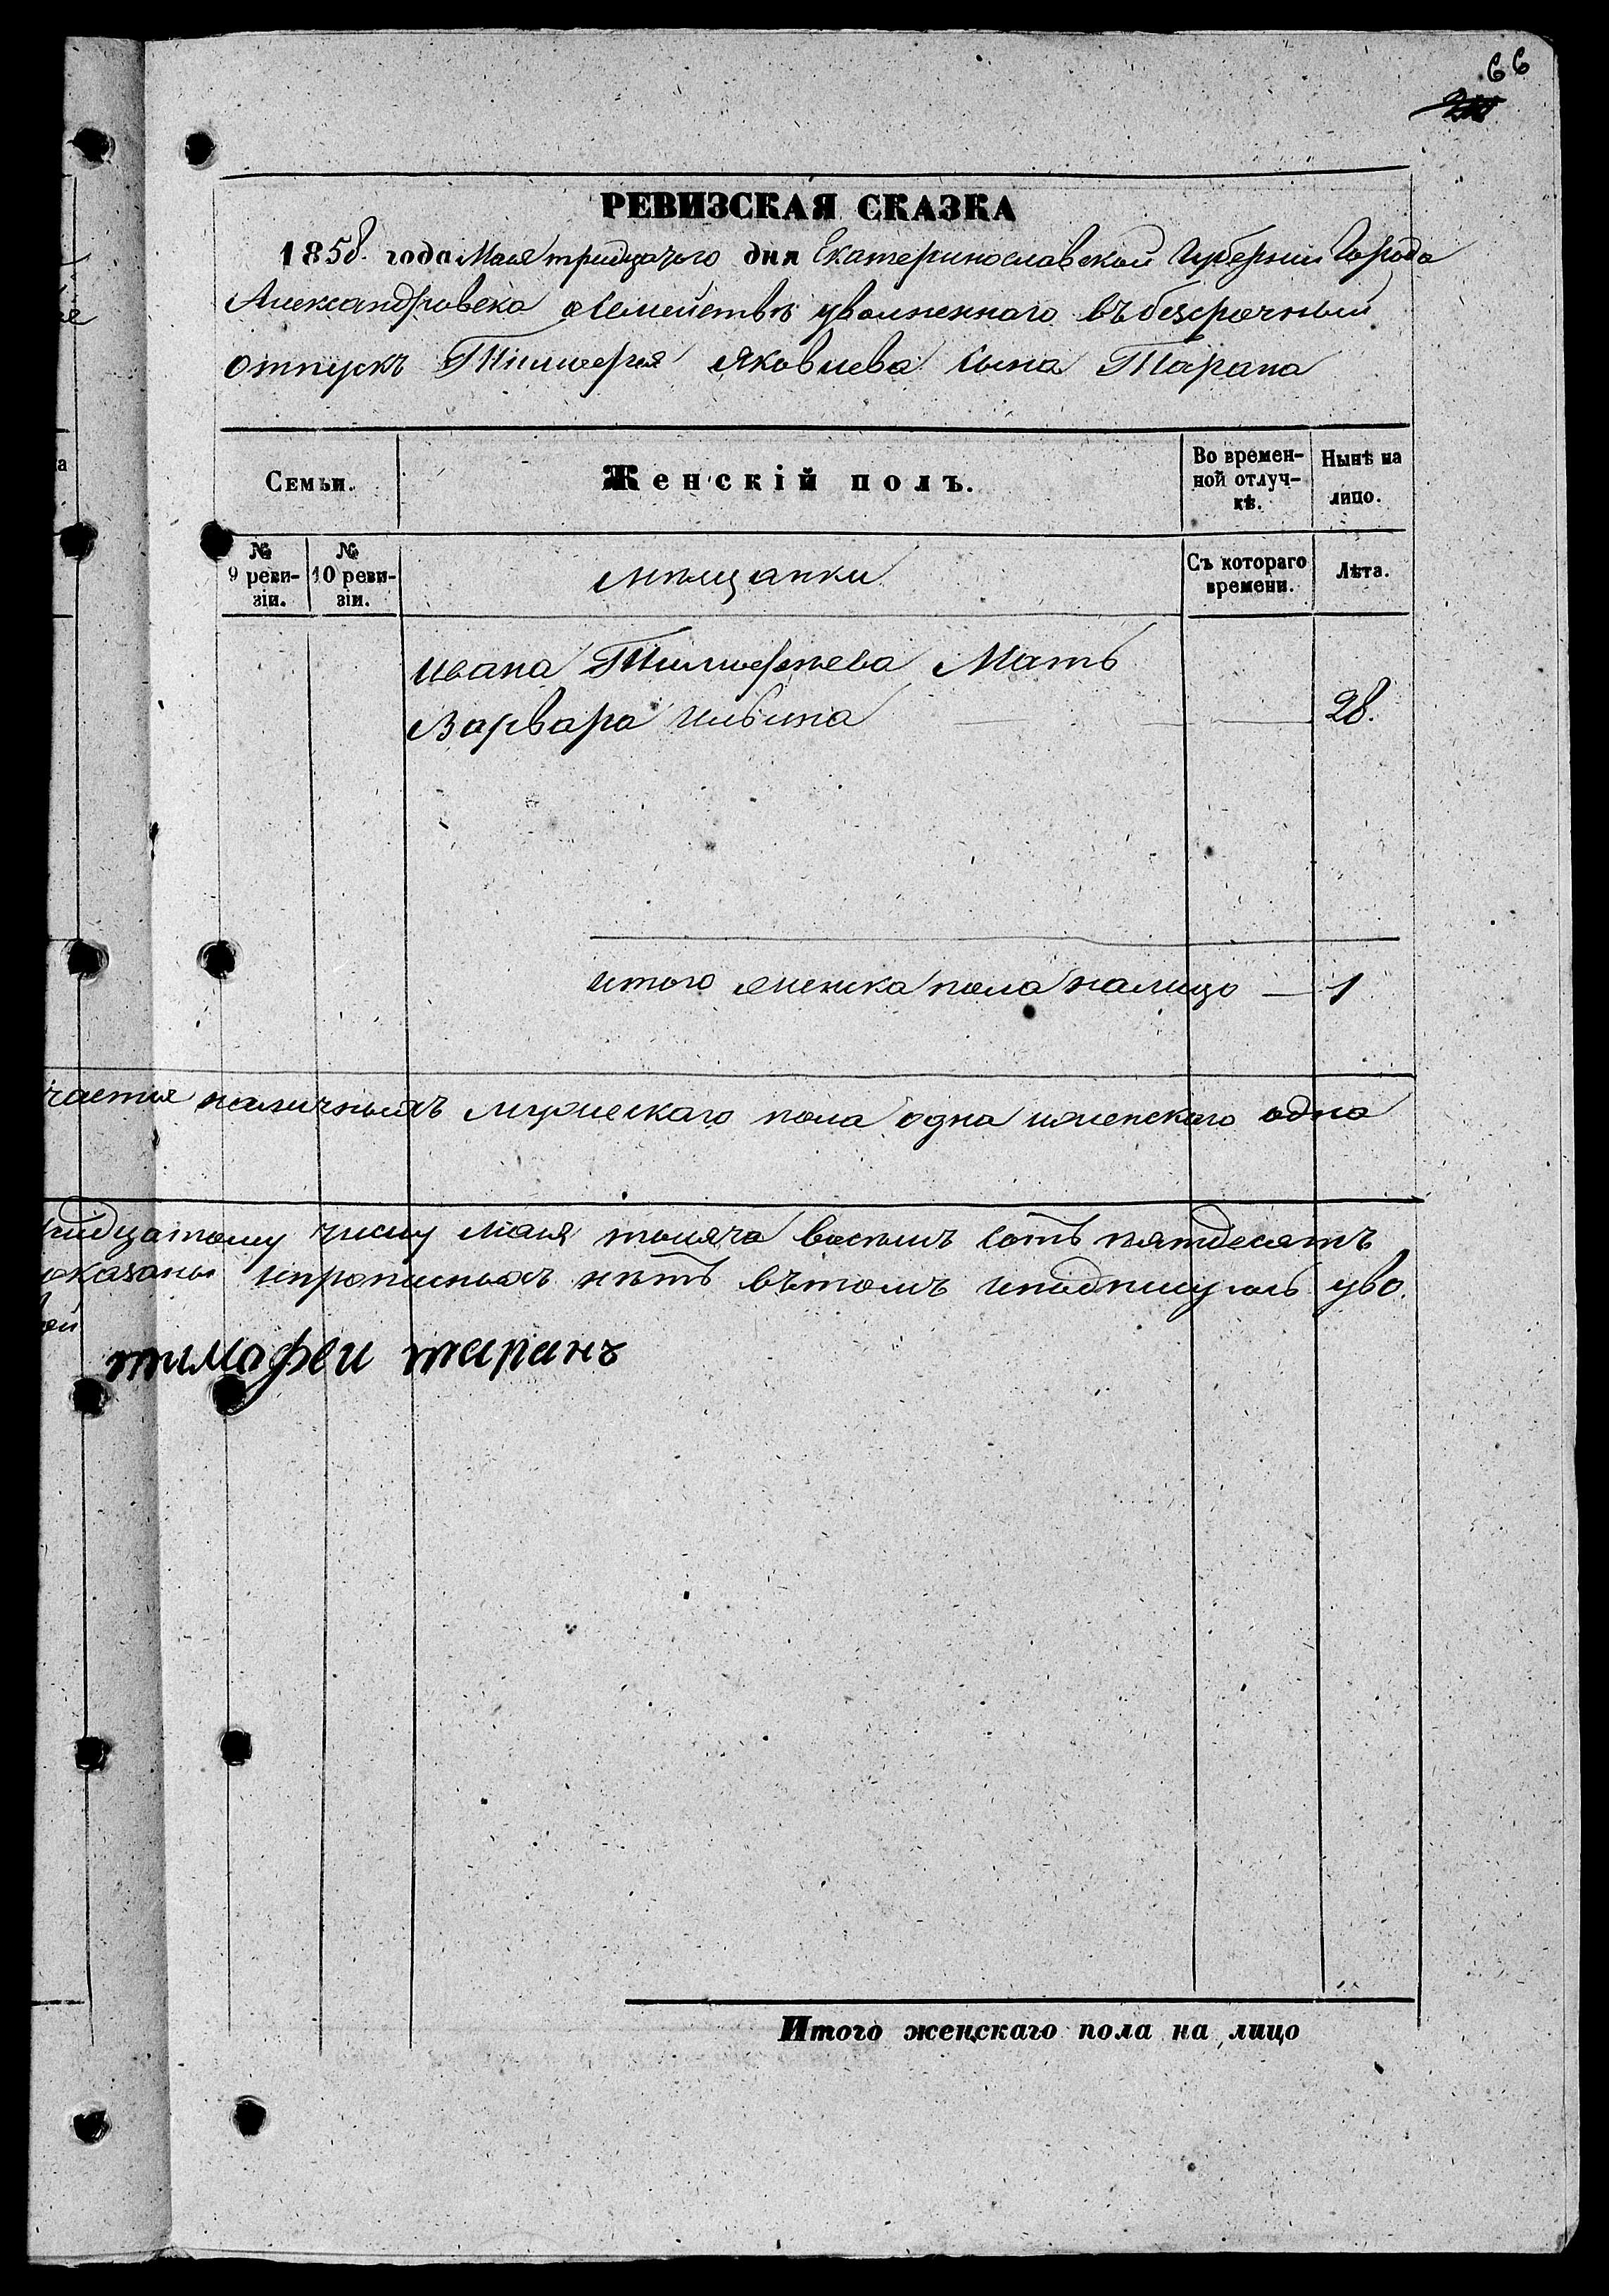 66
РЕВИЗСКАЯ СКАЗКА
1858. года Мая тридцатого дня Екатеринославской Губернии Города
Александровска о Семействе уволненного въ безсрочный
отпускъ Тимофея Яковлева сына Тарана
Семьи.
Женскій полъ.
Во времен-
ной отлуч-
кѣ.
Ныне на
лицо.
№
9 реви-
зіи.
№
10 реви-
зіи.
мѣщанки
Съ котораго
времени.
Лѣта.
Ивана Тимофеева Мать
Варвара Ильина 28.
итого женска пола налицо — 1
наличныхъ мужескаго пола одна иженскаго одна
числу Мая тысяча восемь сотъ пятдесятъ
ипрописныхъ нѣтъ вътомъ иподпишуюсь уво.
тимофеи таранъ
Итого женскаго пола на лицо